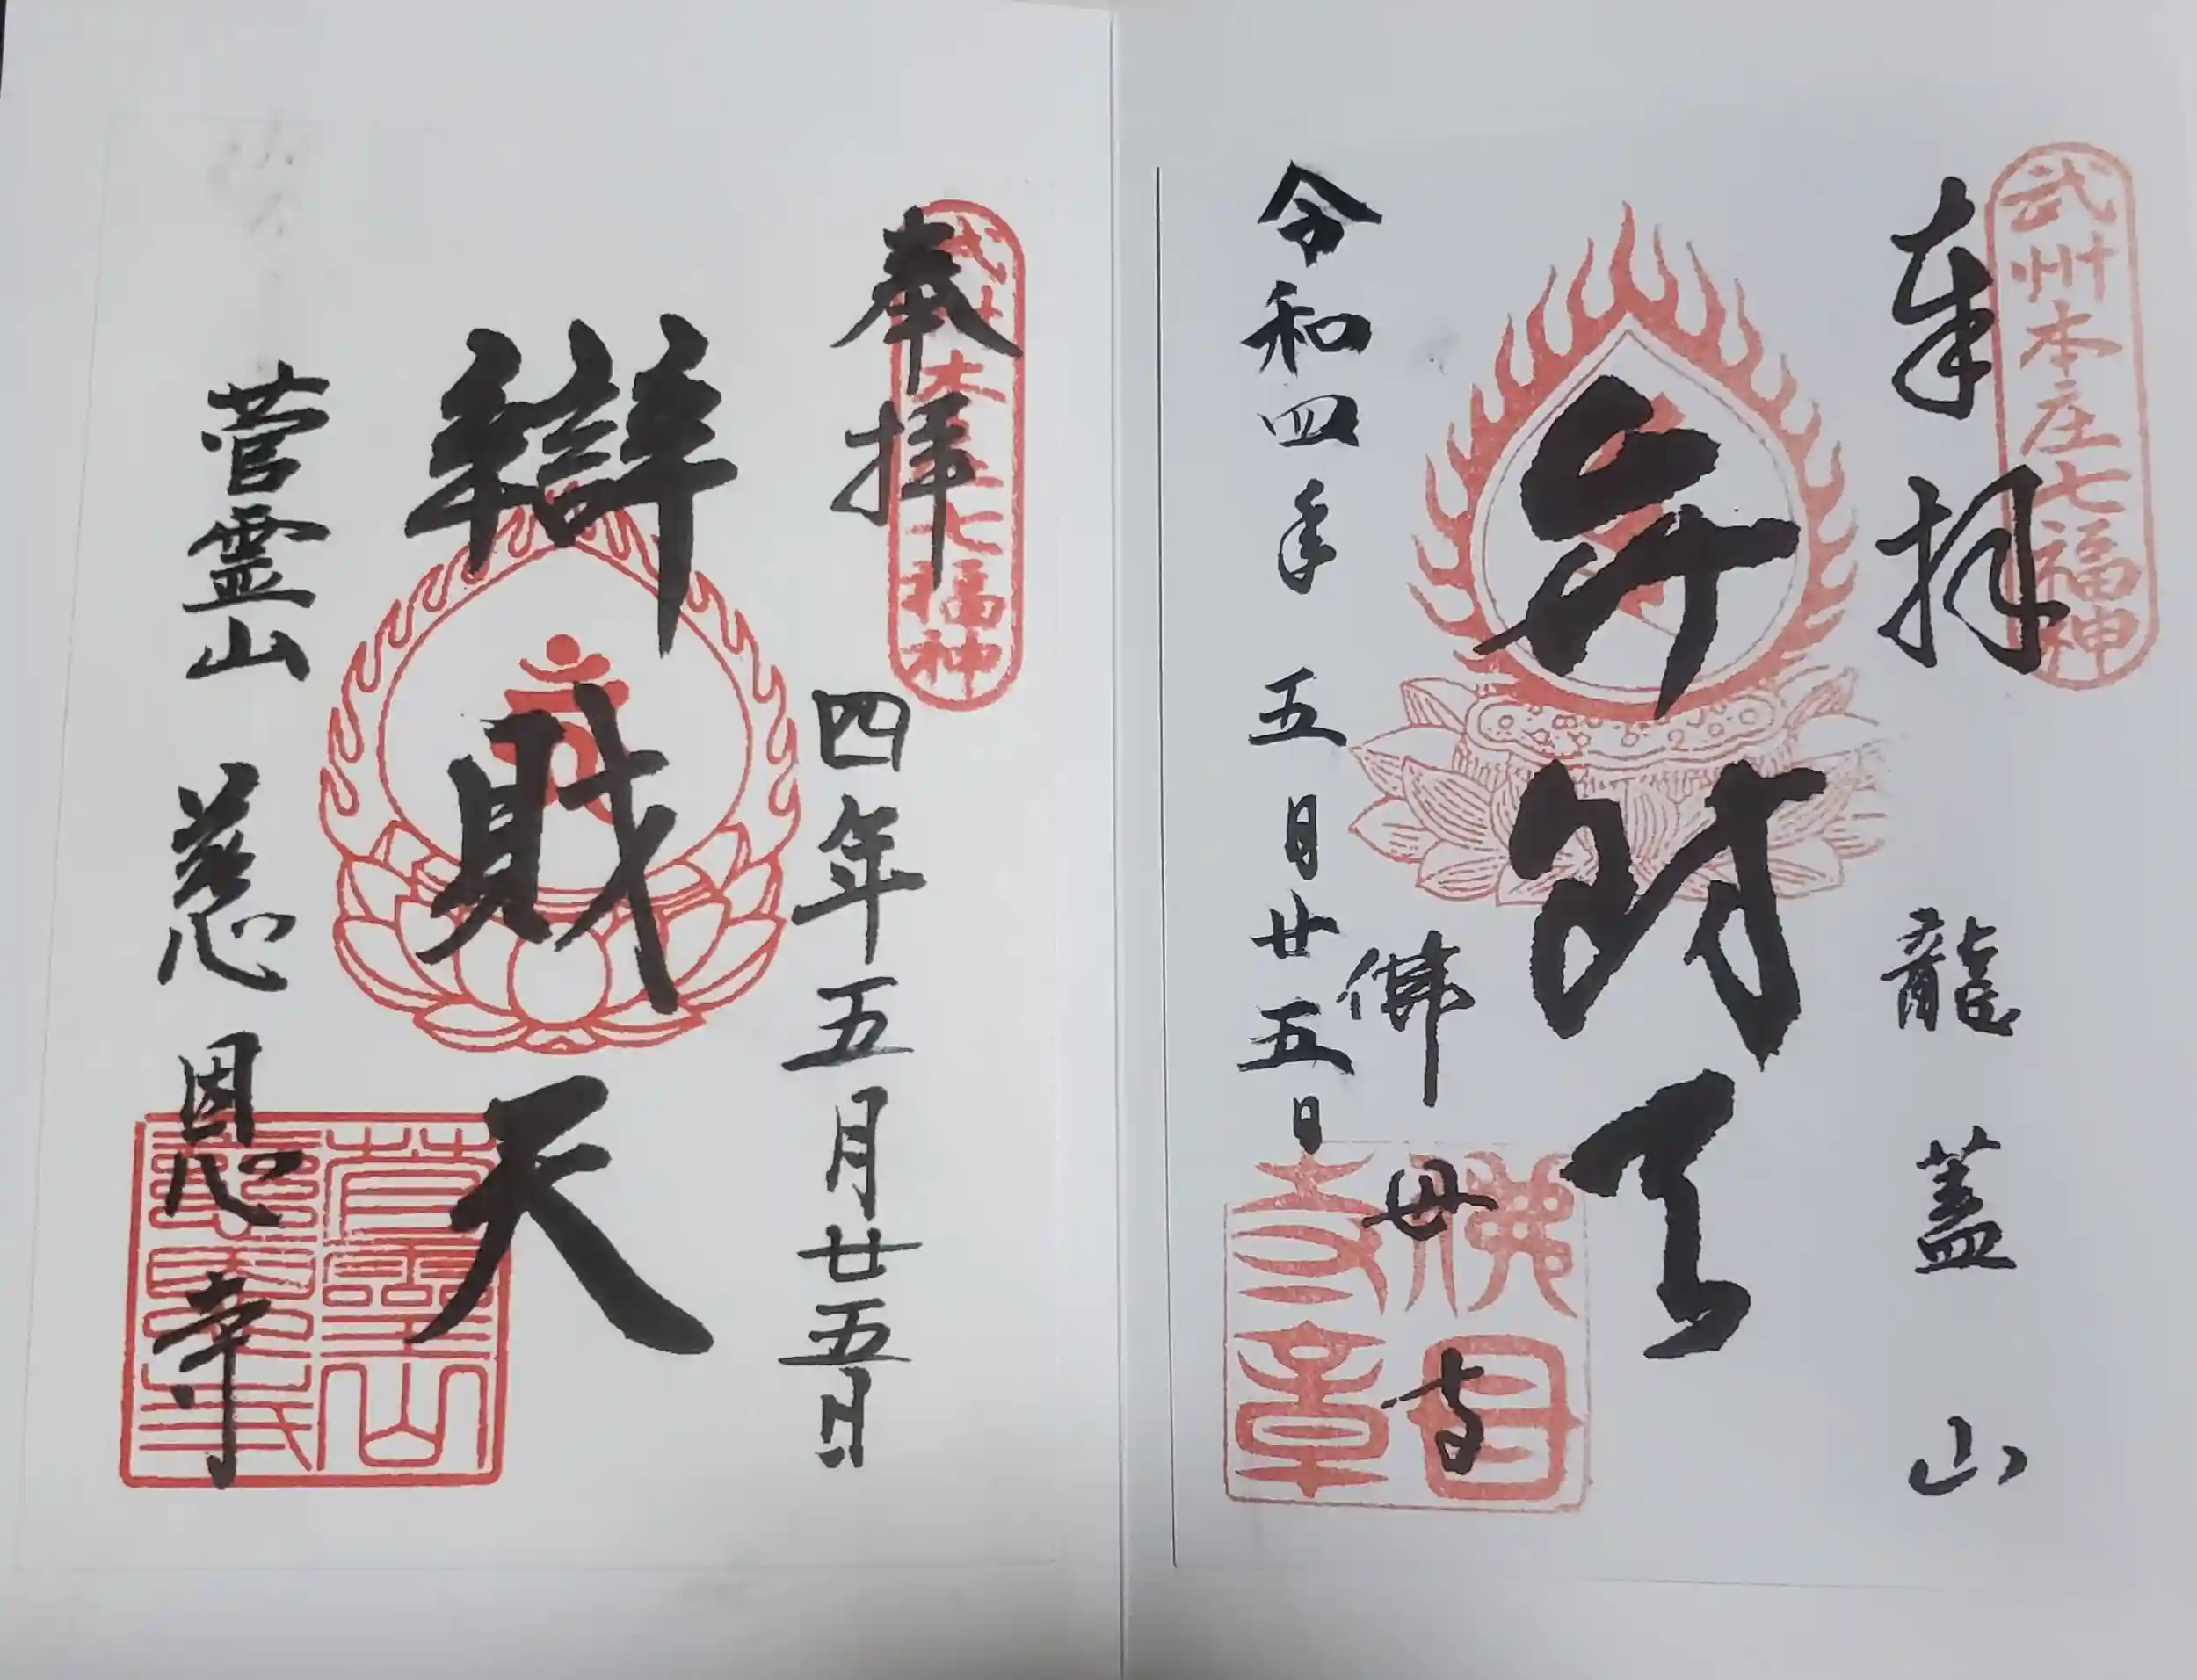 武州本庄七福神
奉拝
龍蓋山
弁財天
佛母寺
佛母寺章
令和四年五月廿五日
武州本庄七福神
奉拝
四年五月廿五日
辯財天
菅霊山 慈恩寺
菅霊山